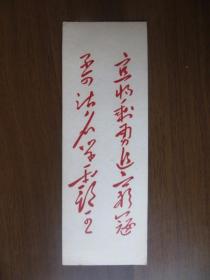 宜将剩勇追穷寇
不可沽名学霸王